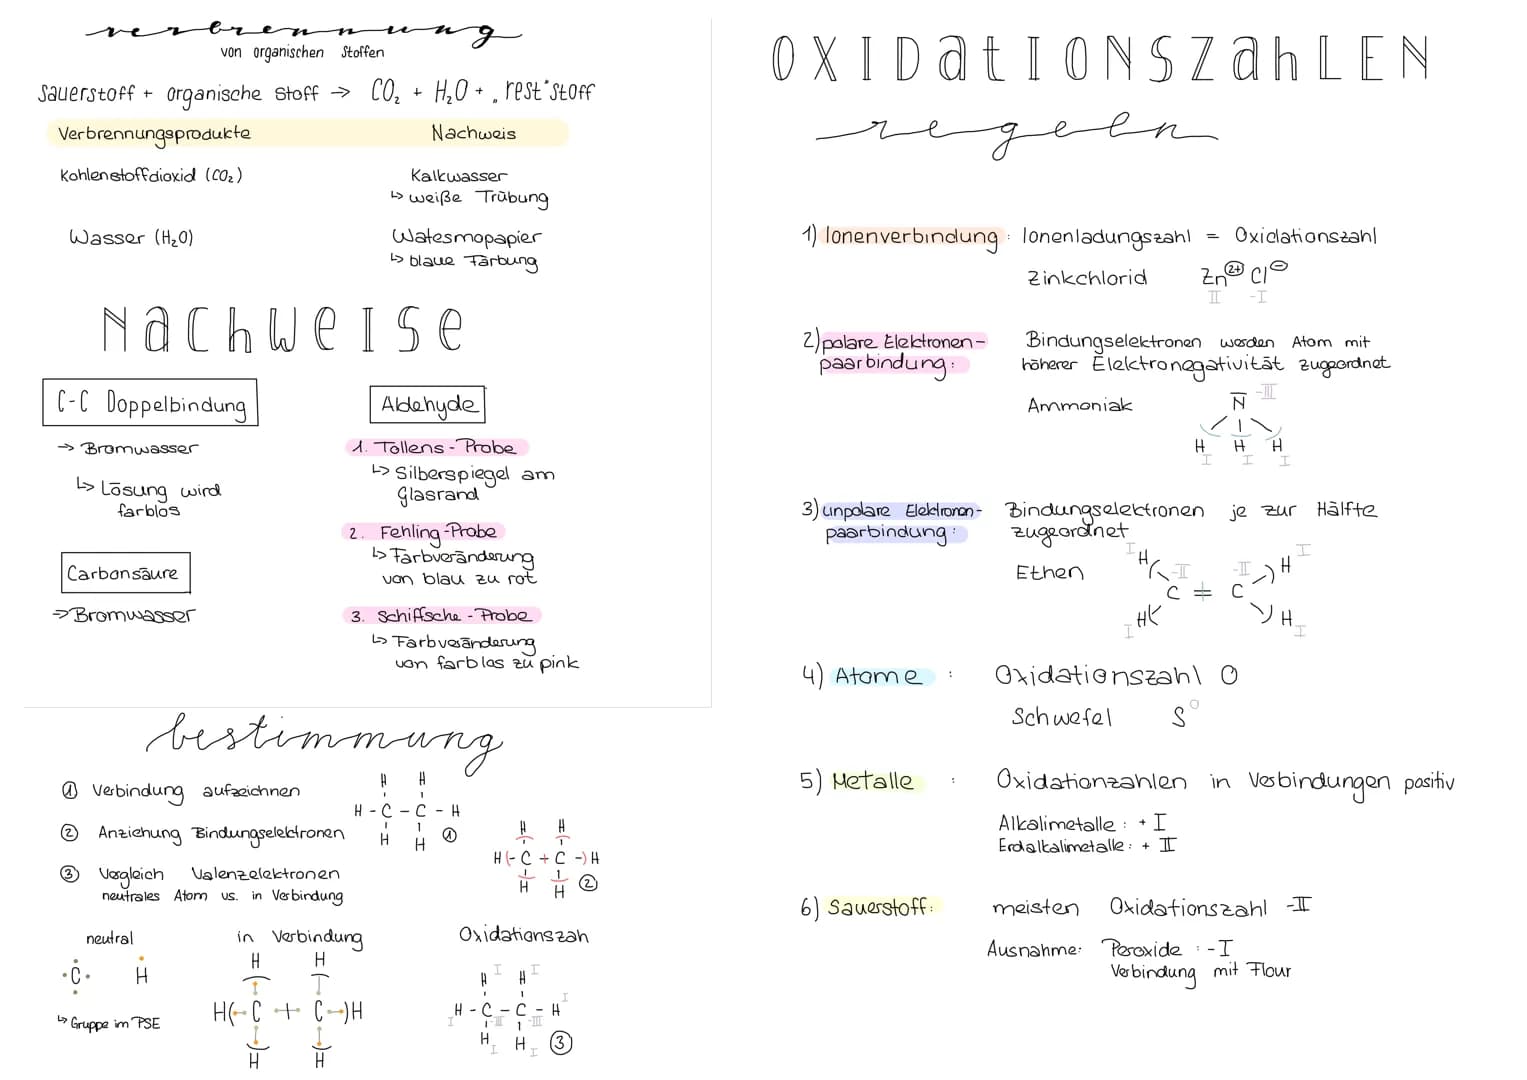 verbrennung
von organischen Stoffen
Sauerstoff + organische Stoff → CO₂ + H₂O + "rest" stoff
Verbrennungsprodukte Nachweis
Kohlenstoffdioxid (CO₂) Kalkwasser
↳ weiße Trübung
Wasser (H₂O) Watesmopapier
↳ blaue Färbung
Nachweise
C-C Doppelbindung
→ Bromwasser
↳ Lösung wird
farblos
Carbonsäure
→ Bromwasser
Aldehyde
1. Tollens-Probe
↳ Silberspiegel am
Glasrand
2. Fehling-Probe
↳ Farbveränderung
von blau zu rot
3. Schiffsche-Probe
↳ Farbveränderung
von farblos zu pink
bestimmung
① Verbindung aufzeichnen
② Anziehung Bindungselektronen
③ Vergleich Valenzelektronen
neutrales Atom vs. in Verbindung
H H
H - C - C - H
H H ①
H H
H (- C + C -) H
H H ②
neutral in Verbindung Oxidationszah
·C· H
↳ Gruppe im PSE
H H
H (- C + C -) H
H H
H I H I
H - C - C - H I
I -III -III
H I H I ③
OXIDATIONSZAHLEN
regeln
1) Ionenverbindung: Ionenladungszahl = Oxidationszahl
Zinkchlorid Zn²⁺ Cl⁻
II -I
2) polare Elektronen-
paarbindung:
Bindungselektronen werden Atom mit
höherer Elektronegativität zugeordnet
Ammoniak N -III
H H H
I I I
3) unpolare Elektronen-
paarbindung:
Bindungselektronen je zur Hälfte
zugeordnet
Ethen
I H -II -II H I
C = C
I H H I
4) Atome : Oxidationszahl 0
Schwefel S⁰
5) Metalle : Oxidationzahlen in Verbindungen positiv
Alkalimetalle : + I
Erdalkalimetalle : + II
6) Sauerstoff: meisten Oxidationszahl -II
Ausnahme: Peroxide : -I
Verbindung mit Flour